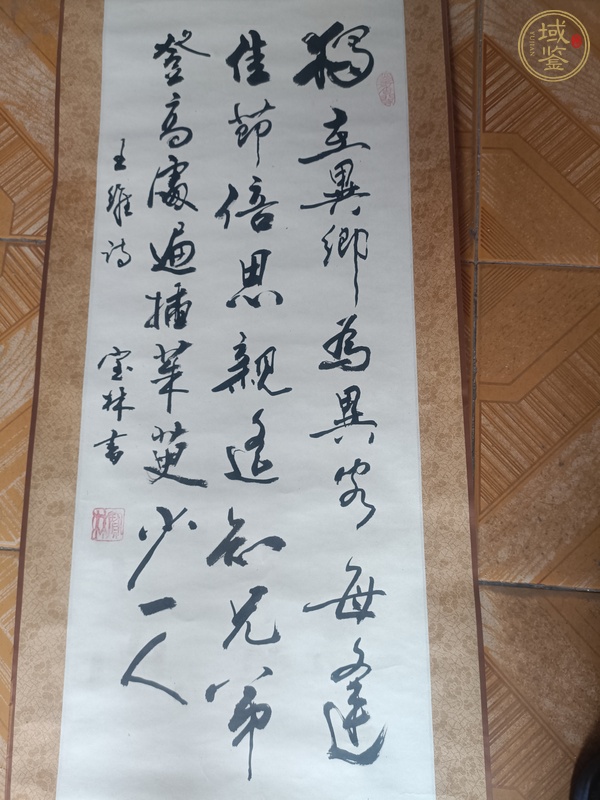 獨在異鄉為異客每逢
佳節倍思親遙知兄弟
登高處遍插茱萸少一人
王維詩
宝林書
域鉴
YUJIAN